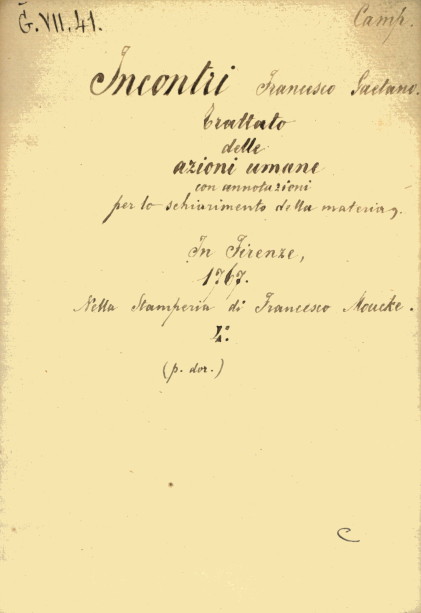 G.VII.41.
Camp.
Incontri Francesco Gaetano.
Trattato
delle
azioni umane
con annotazioni
per lo schiarimento della materia.
In Firenze,
1767.
Nella Stamperia di Francesco Moucke.
4°.
(p. dor.)
C